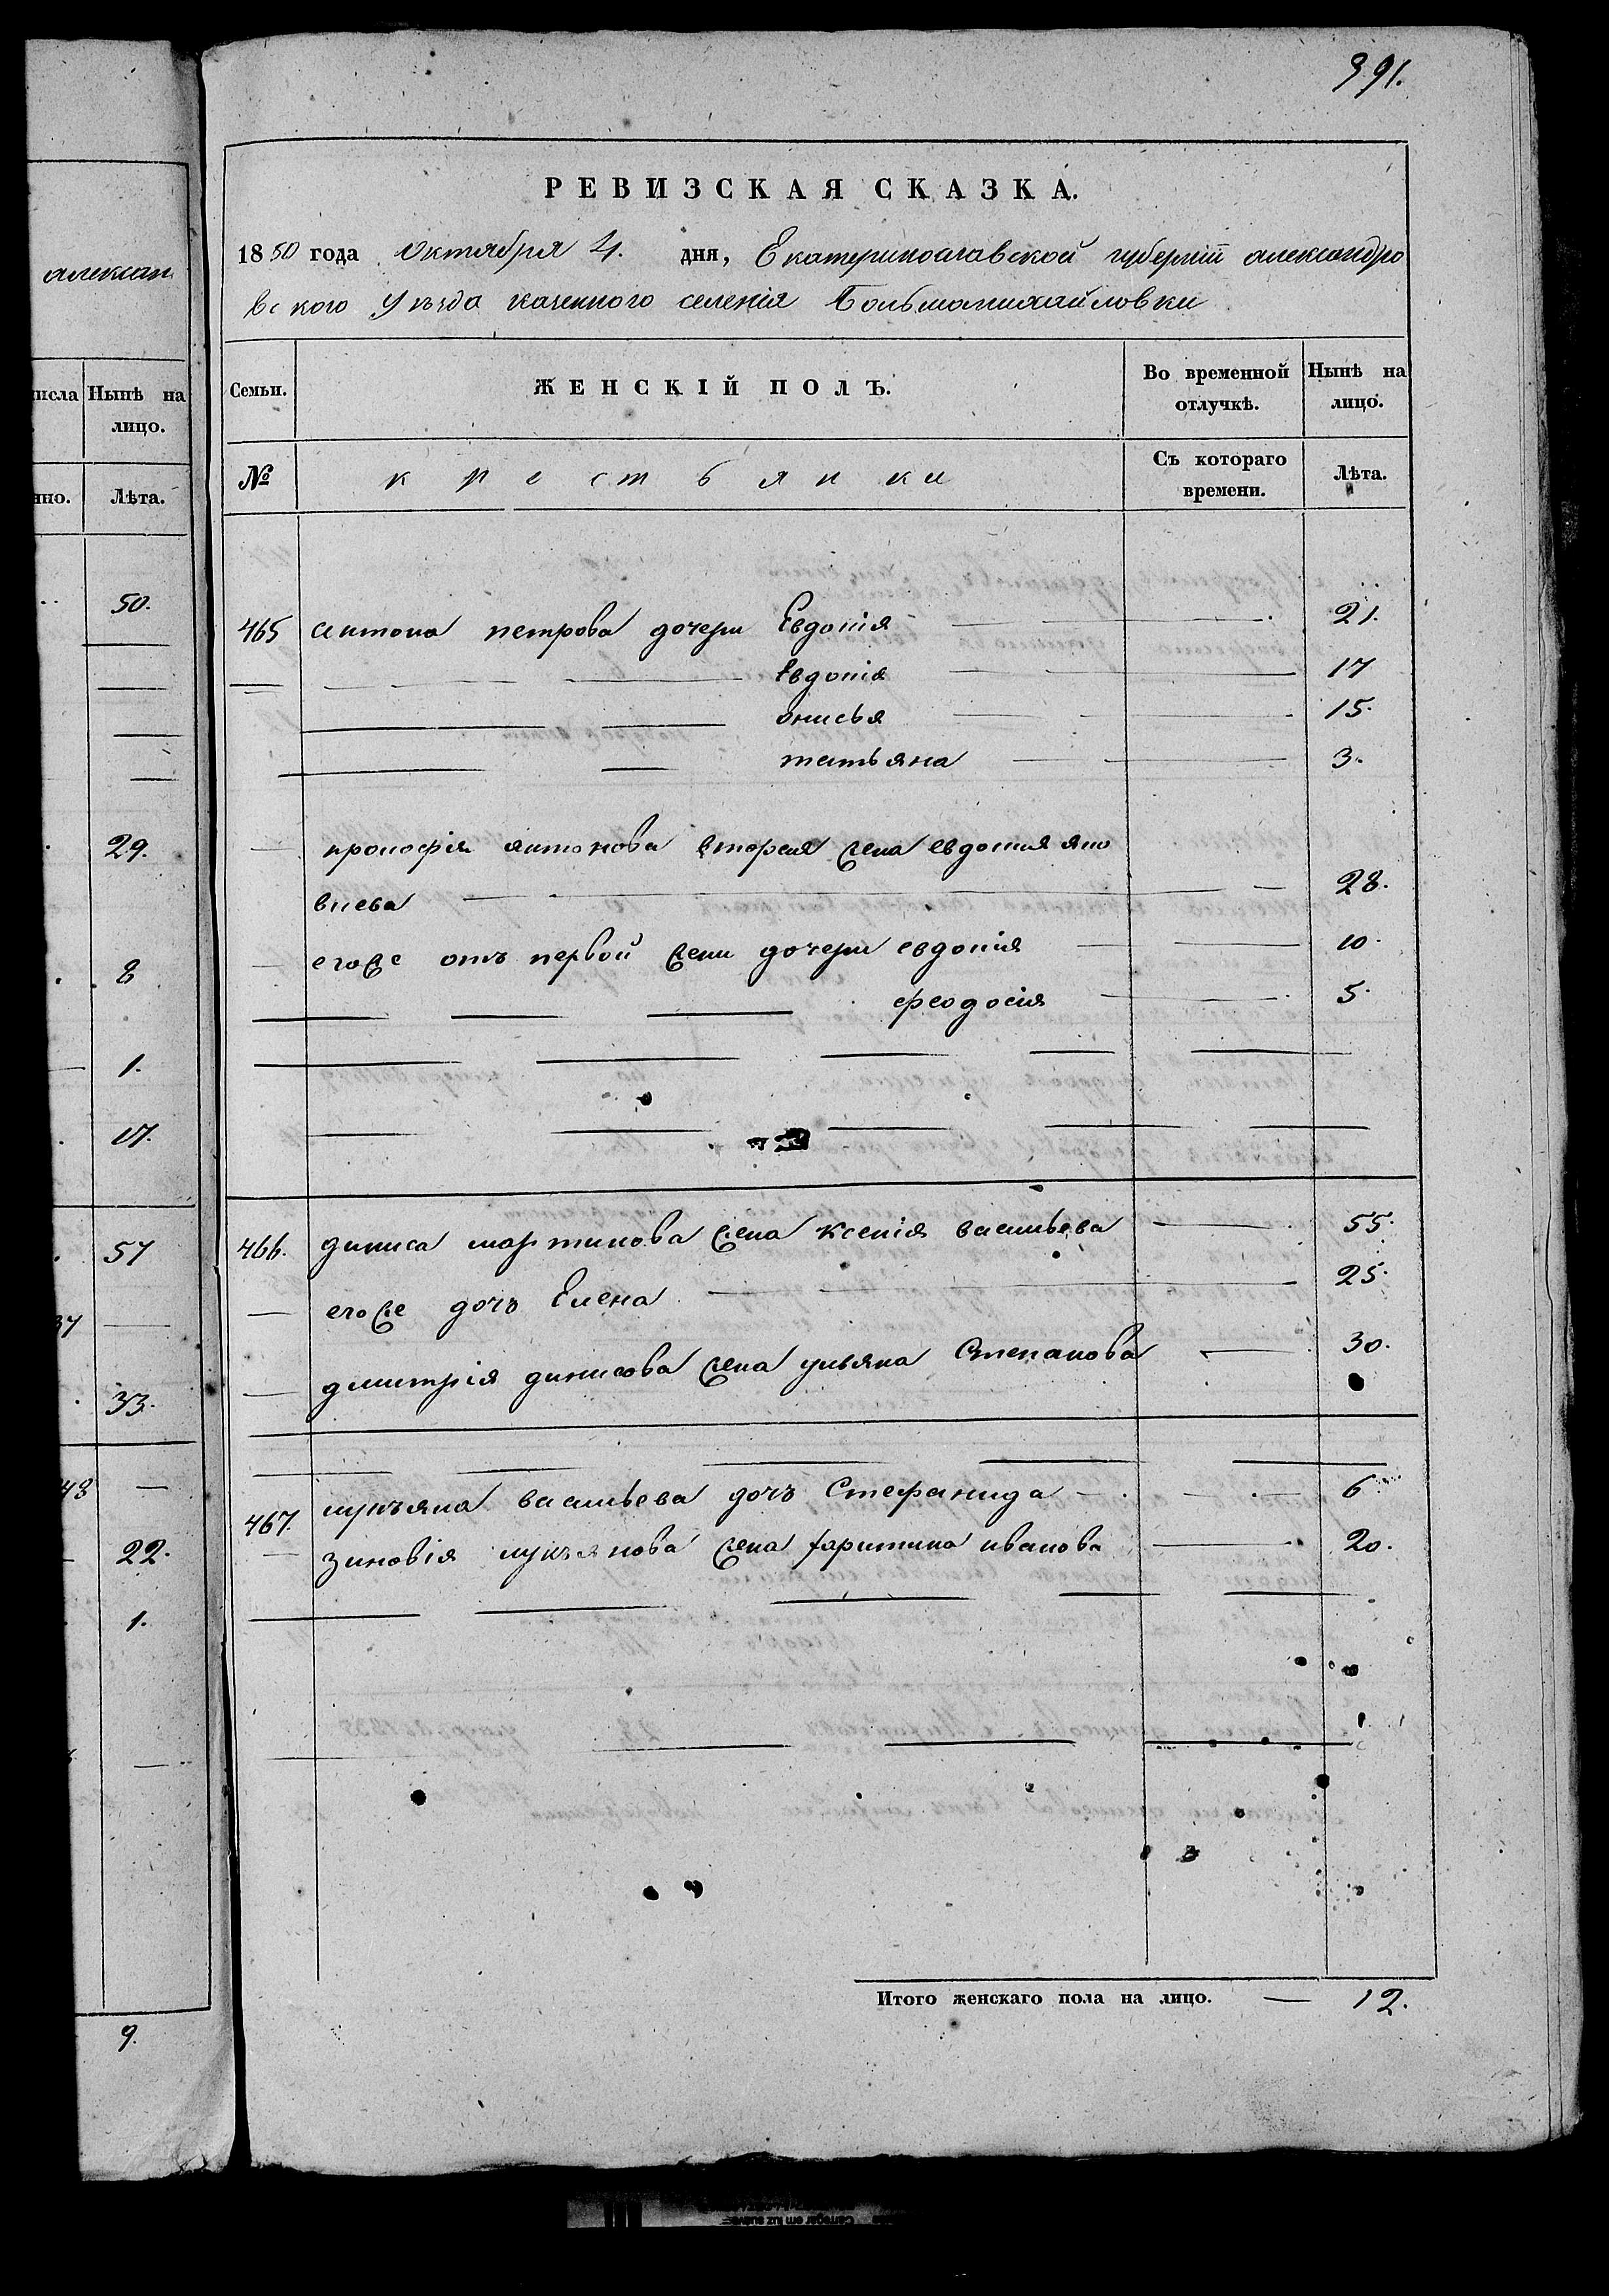 391.
алексан
исла Нынѣ на
лицо.
нно. Лѣта.
50.
29.
8
1.
17.
57
37
33.
48
22.
1.
9.
РЕВИЗСКАЯ СКАЗКА.
1850 года Октября 4. дня, Екатеринославской губерніи александро
вского Уѣзда казенного селенія Большомихайловки
Семьи. ЖЕНСКІЙ ПОЛЪ. Во временной отлучкѣ. Нынѣ на лицо.
№ крестьянки Съ котораго времени. Лѣта.
465 антона петрова дочери Евдокія 21.
Евдокія 17
онисья 15.
татьяна 3.
прокофія антонова вторая жена евдокия яко
влева 28.
егоже отъ первой жени дочери евдокія 10.
феодосія 5.
466. диниса мартинова жена ксенія васильева 55.
егоже дочь Елена 25.
дмитрія динисова жена ульяна Степанова 30.
467. лукъяна васильева дочь Стефанида 6
зиновія лукъянова жена харитина иванова 20.
Итого женскаго пола на лицо. — 12.